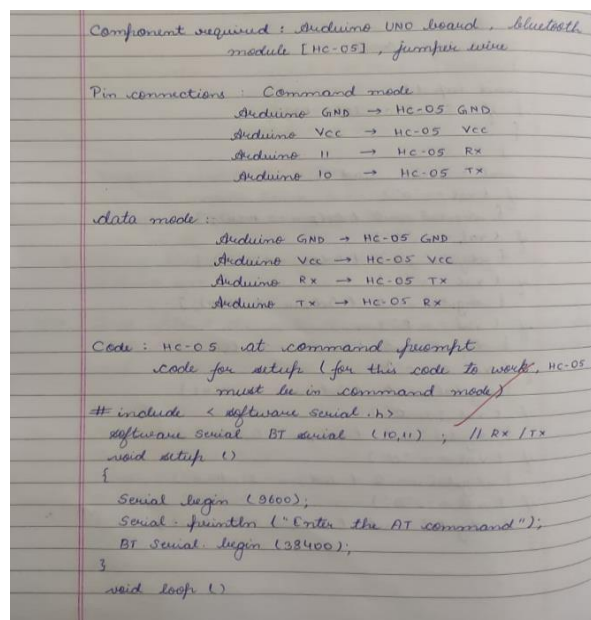 Component required : Arduino UNO board, bluetooth
module [HC-05], jumper wire
Pin connections : Command mode
Arduino GND → HC-05 GND
Arduino Vcc → HC-05 Vcc
Arduino 11 → HC-05 Rx
Arduino 10 → HC-05 Tx
data mode :
Arduino GND → HC-05 GND
Arduino Vcc → HC-05 Vcc
Arduino Rx → HC-05 Tx
Arduino Tx → HC-05 Rx
Code : HC-05 at command prompt
code for setup (for this code to work, HC-05
must be in command mode)
# include < software serial .h>
software serial BT serial (10,11) ; // Rx / Tx
void setup ()
{
Serial begin (9600);
Serial. println ("Enter the AT command");
BT Serial. begin (38400);
}
void loop ()